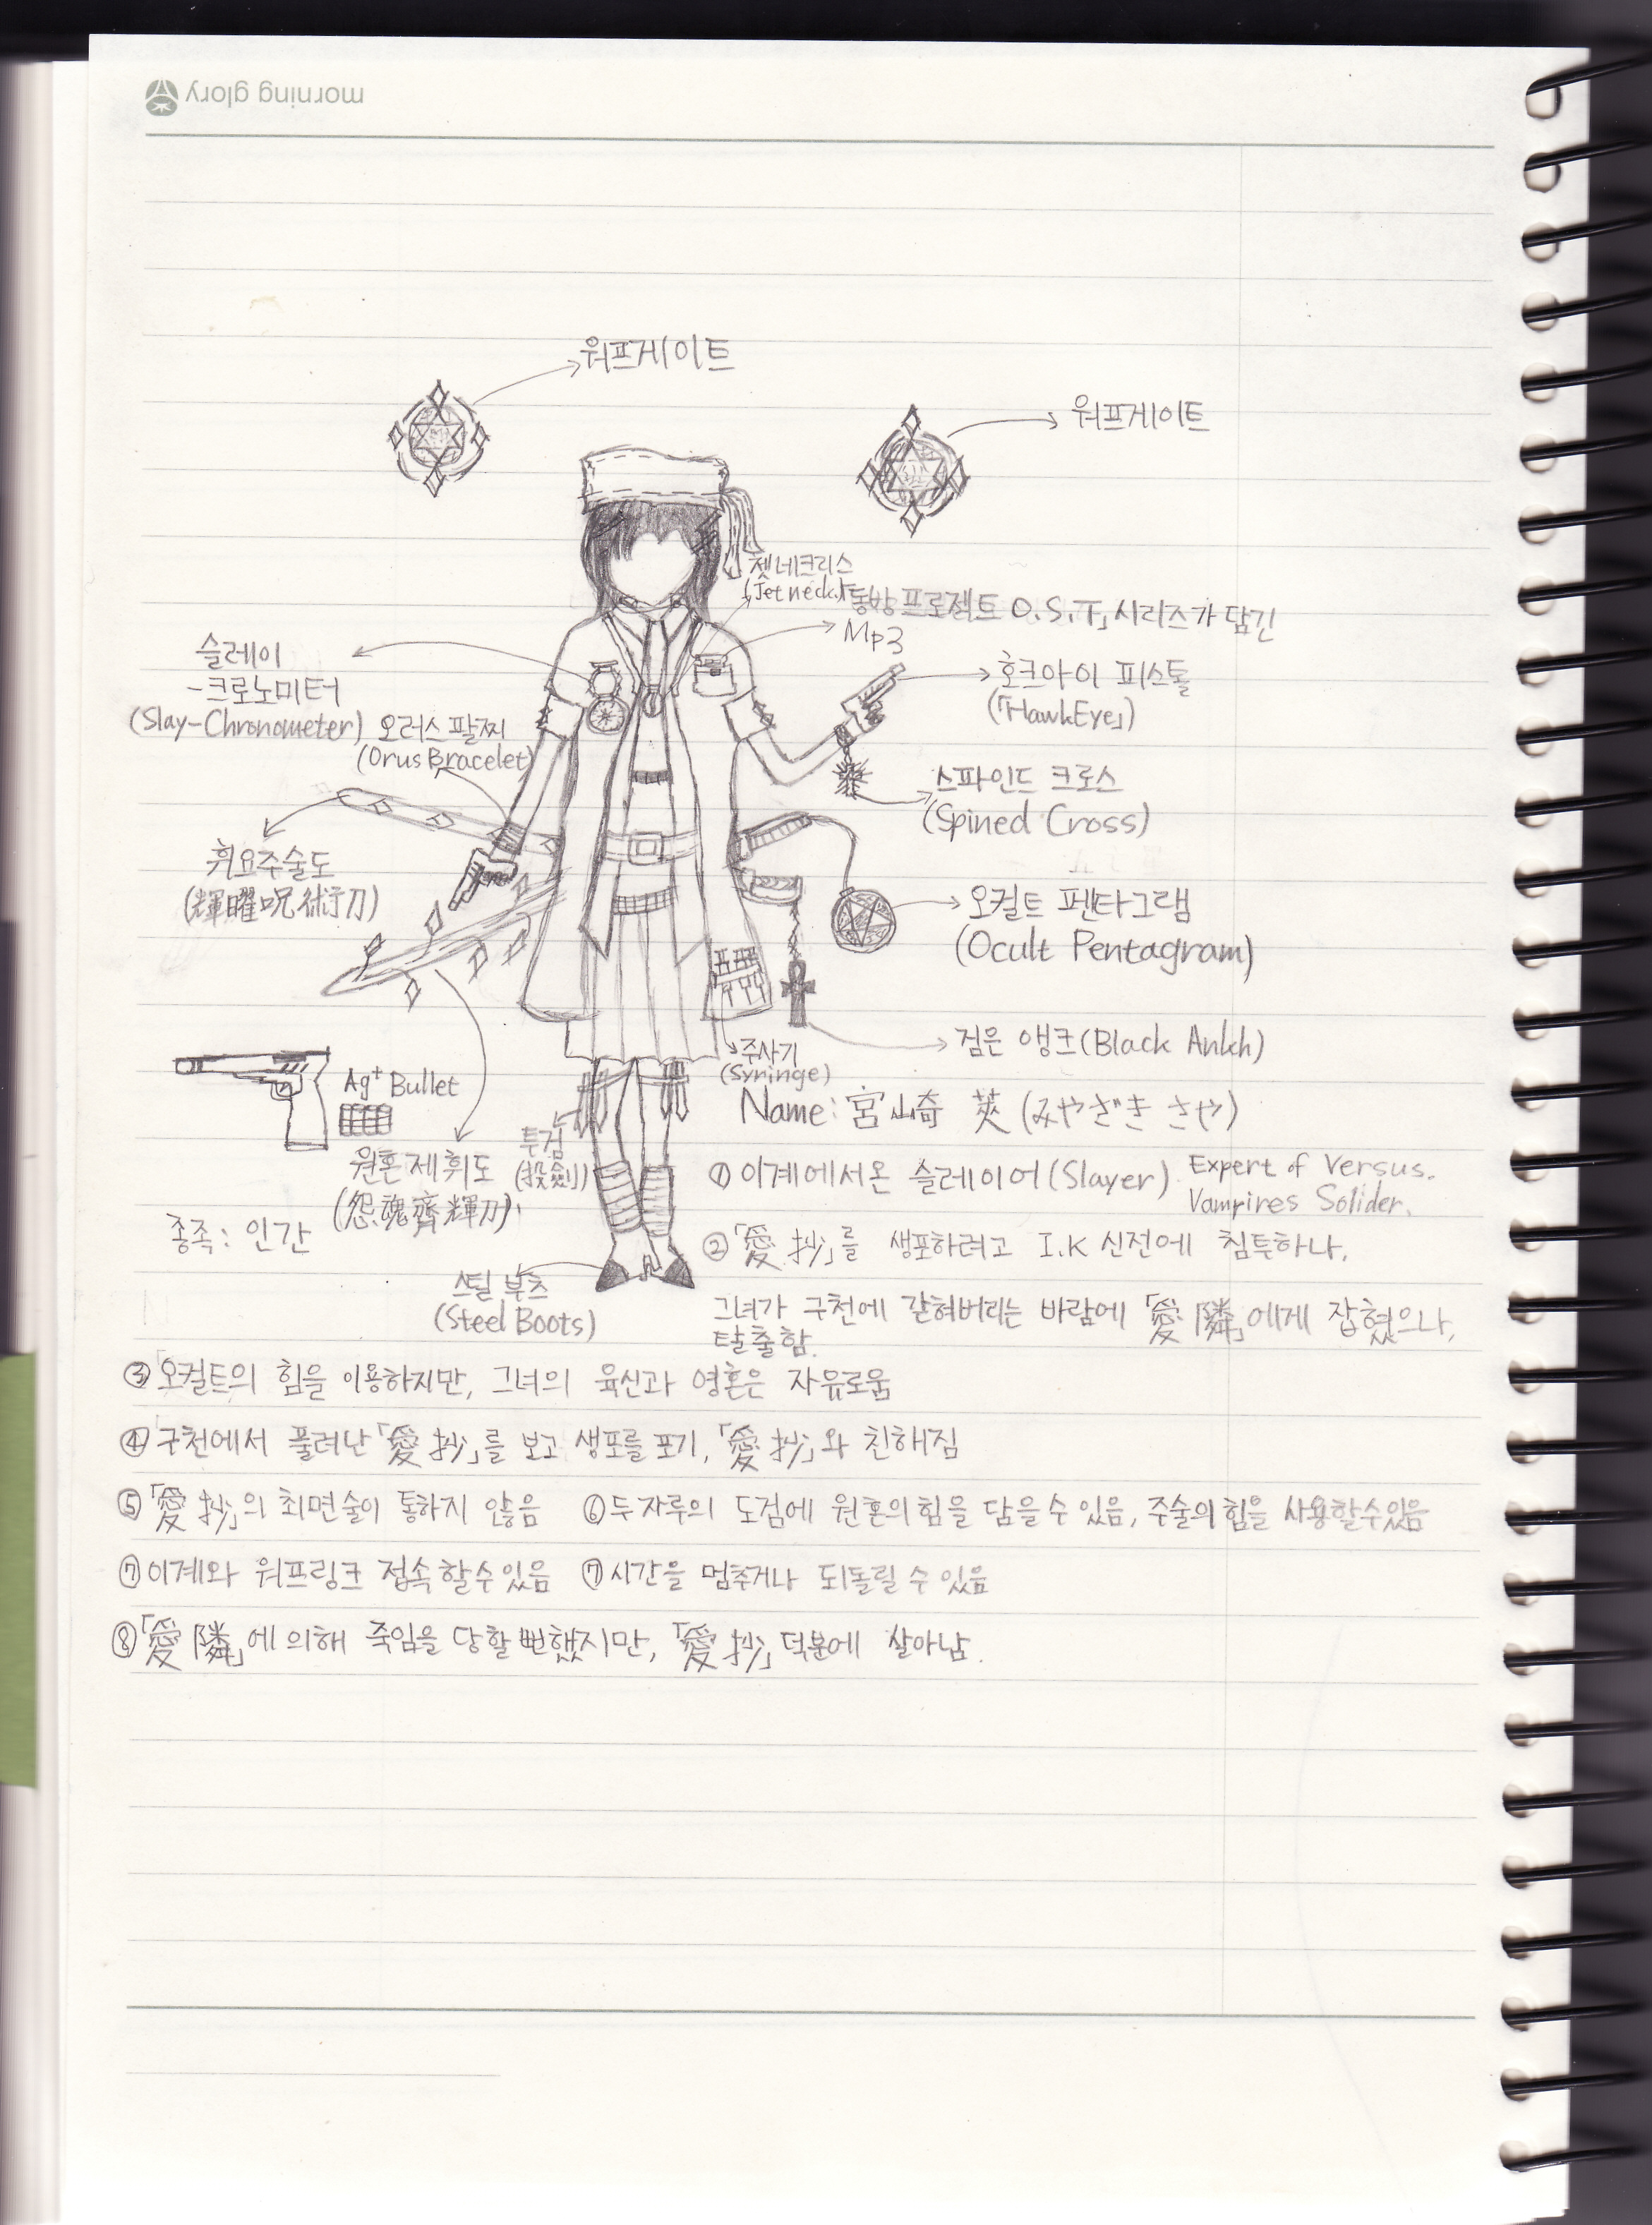 morning glory
워프게이트
워프게이트
젯네크리스
(Jet neck.)
「동방프로젝트 O.S.T」시리즈가 담긴
Mp3
슬레이
-크로노미터
(Slay-Chronometer)
호크아이 피스톨
(「HawkEye」)
오러스 팔찌
(Orus Bracelet)
스파인드 크로스
(Spined Cross)
휘요주술도
(輝曜呪術刀)
오컬트 펜타그램
(Ocult Pentagram)
검은 앵크(Black Ankh)
주사기
(Syringe)
Ag+ Bullet
Name: 宮山奇 莢 (みやざき さや)
투검
(投劍)
원혼제휘도
(怨魂齊輝刀)
종족: 인간
① 이계에서온 슬레이어(Slayer). Expert of Versus.
Vampires Solider.
②「愛抄」를 생포하려고 I.K 신전에 침투하나,
스틸 부츠
(Steel Boots)
그녀가 구천에 갇혀버리는 바람에 「愛隣」에게 잡혔으나,
탈출함.
③ 오컬트의 힘을 이용하지만, 그녀의 육신과 영혼은 자유로움
④ 구천에서 풀려난 「愛抄」를 보고 생포를 포기, 「愛抄」와 친해짐
⑤「愛抄」의 최면술이 통하지 않음 ⑥ 두자루의 도검에 원혼의 힘을 담을수 있음, 주술의 힘을 사용할수있음
⑦ 이계와 워프링크 접속할수있음 ⑦ 시간을 멈추거나 되돌릴 수 있음
⑧「愛隣」에 의해 죽임을 당할뻔했지만, 「愛抄」덕분에 살아남.